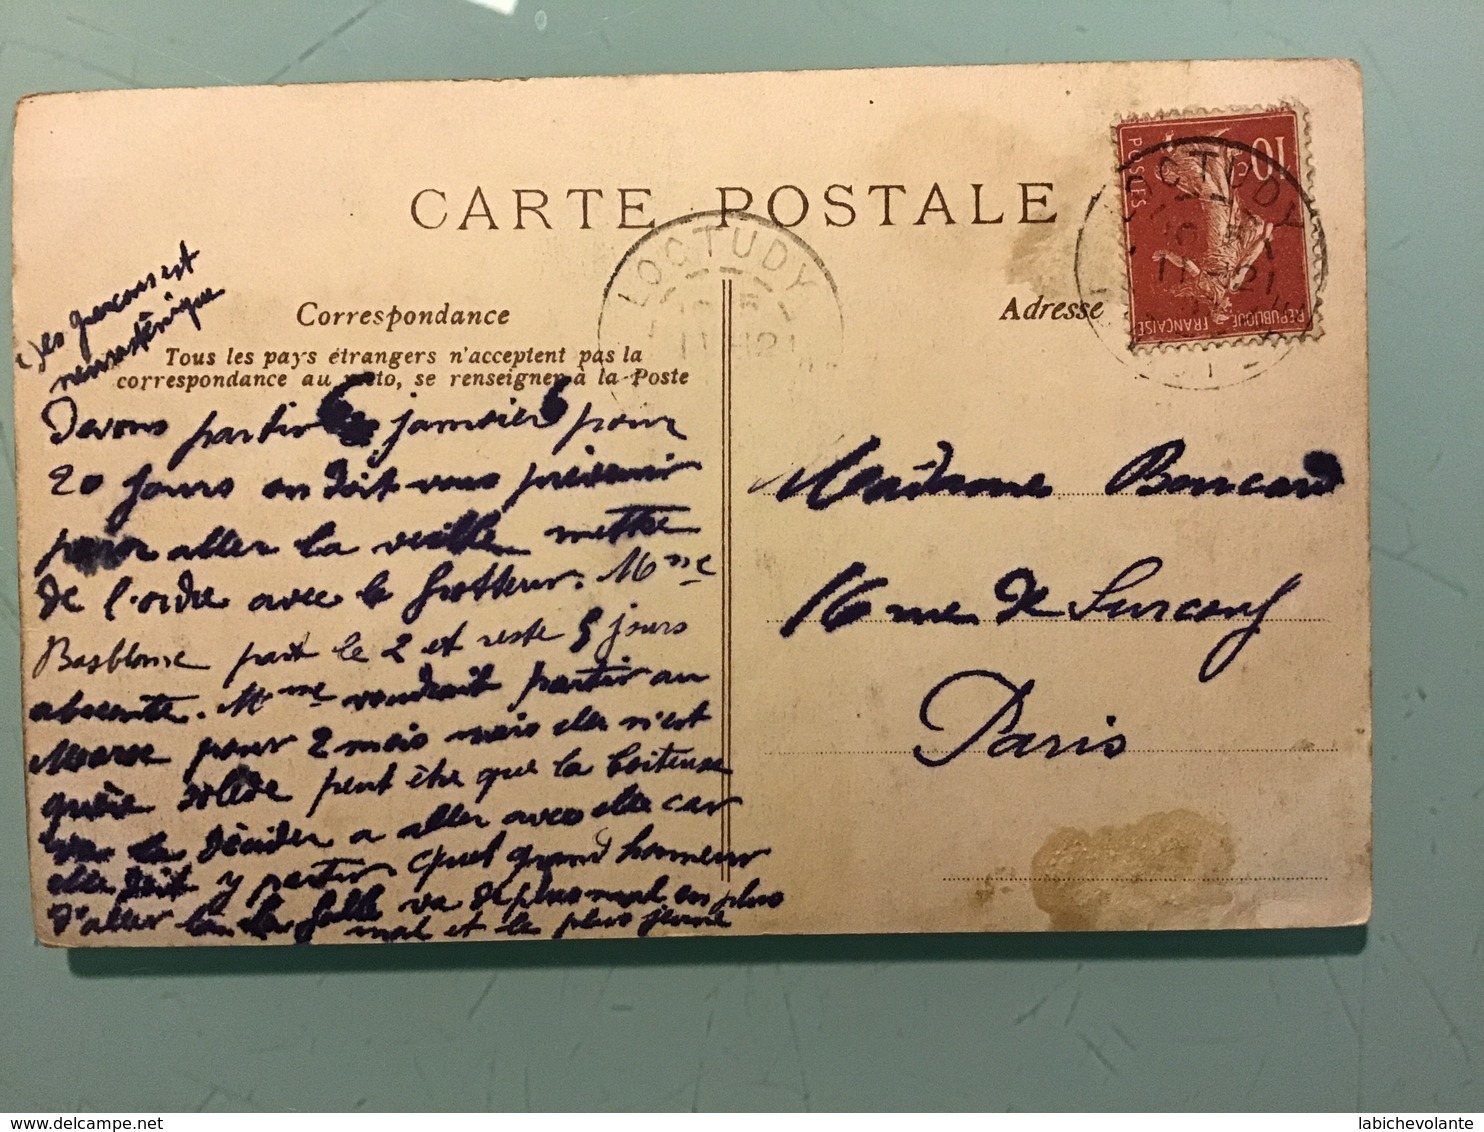 CARTE POSTALE
Correspondance
Tous les pays étrangers n'acceptent pas la
correspondance au recto, se renseigner à la Poste
Adresse
LOCTUDY
LOCTUDY
10
POSTES
REPUBLIQUE FRANÇAISE
des garçons est
neurasténique
Devons partir janvier pour
20 jours on doit vous prévenir
pour aller la veille mettre
de l'ordre avec le frotteur. Mme
part le 2 et reste 5 jours
absente. Mme voudrait partir au
Maroc pour 2 mois mais elle n'est
guère solide peut être que la boiteuse
va la décider a aller avec elle car
elle doit y partir quel grand honneur
d'aller la folle va de plus mal en plus
mal et le plus jeune
Madame Boncard
16 rue de Surcouf
Paris
labichevolante